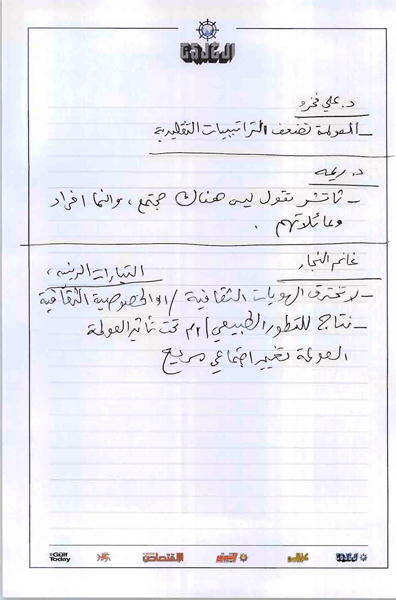 الخليج
د. علي فخرو
- العولمة تضعف التراتبيات التقليدية
د. ريمه
- ثاتشر تقول ليس هناك مجتمع، وانما افراد
وعائلاتهم.
غانم النجار
التيارات الدينية،
- لا تخترق الهويات الثقافية / او الخصوصية الثقافية
- نتاج للتطور الطبيعي / ام تحت تأثير العولمة
العولمة تغيير اجتماعي سريع
Gulf Today
الإقتصادي
الخليج